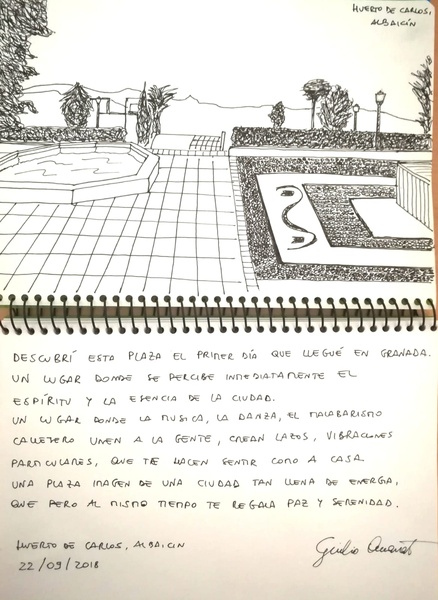 HUERTO DE CARLOS,
ALBAICÍN
DESCUBRÍ ESTA PLAZA EL PRIMER DÍA QUE LLEGUÉ EN GRANADA.
UN LUGAR DONDE SE PERCIBE INMEDIATAMENTE EL
ESPÍRITU Y LA ESENCIA DE LA CIUDAD.
UN LUGAR DONDE LA MUSICA, LA DANZA, EL MALABARISMO
CALLEJERO UNEN A LA GENTE, CREAN LAZOS, VIBRACIONES
PARTICULARES, QUE TE HACEN SENTIR COMO A CASA
UNA PLAZA IMAGEN DE UNA CIUDAD TAN LLENA DE ENERGIA,
QUE PERO AL MISMO TIEMPO TE REGALA PAZ Y SERENIDAD.
HUERTO DE CARLOS, ALBAICIN
22/09/2018
Giulio